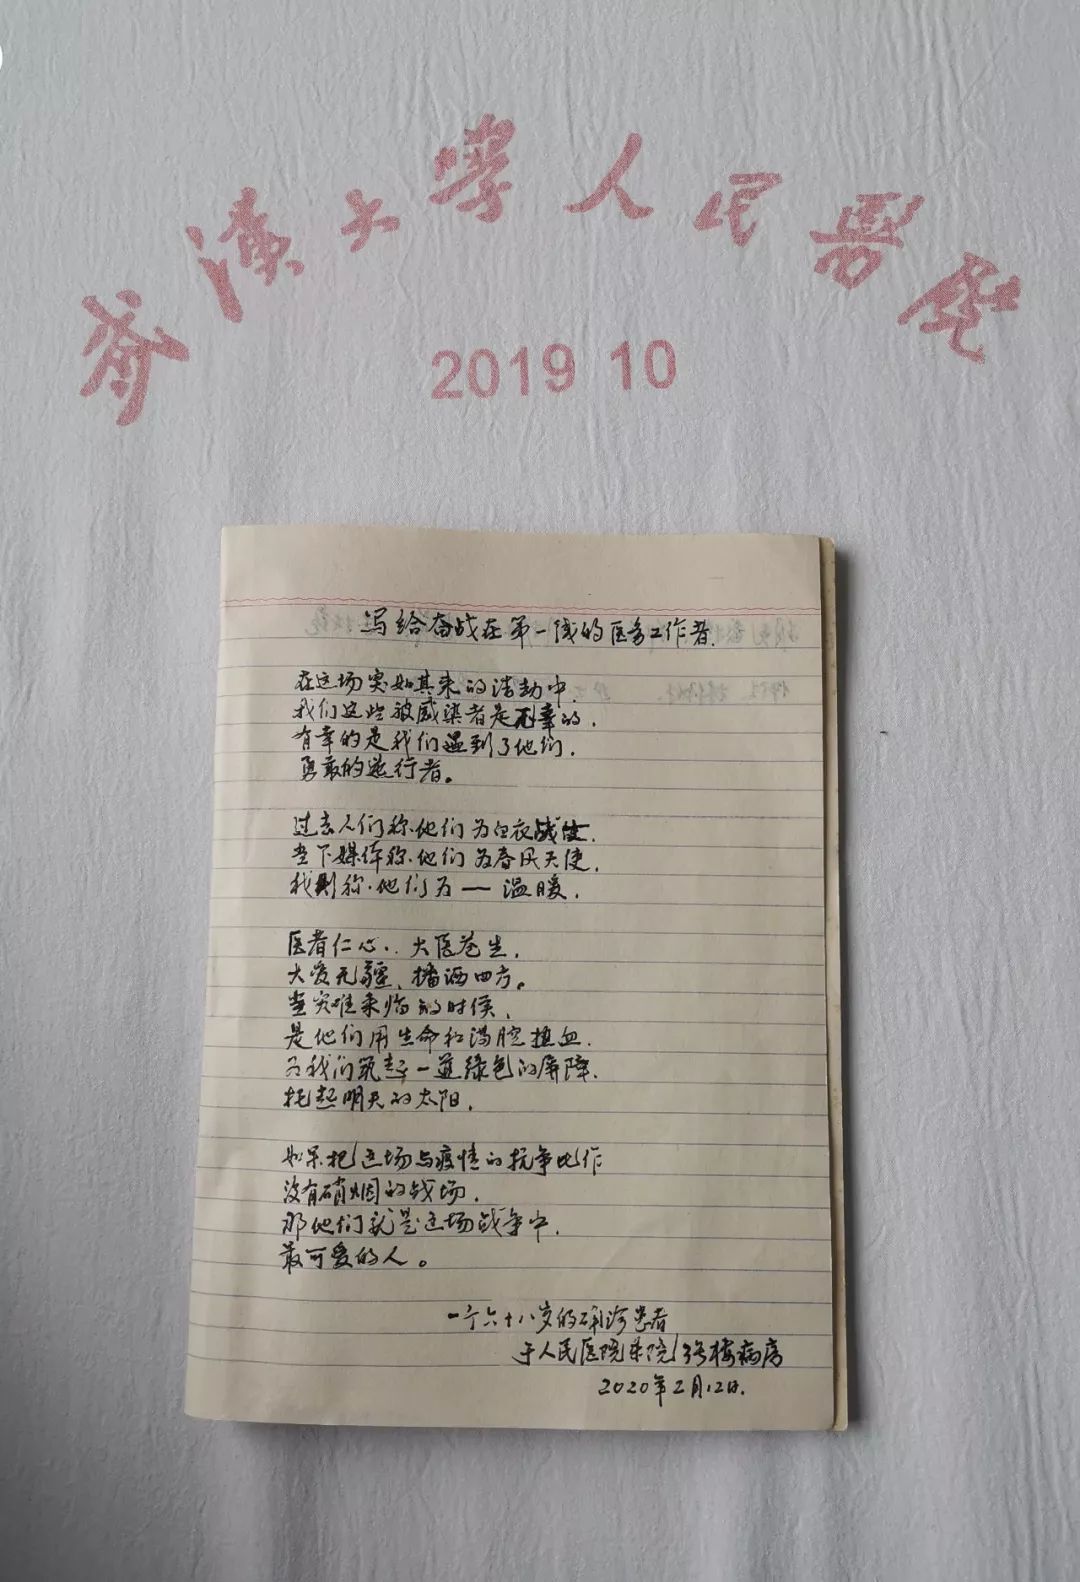 武漢大學人民醫院
2019 10
写给奋战在第一线的医务工作者.
在这场突如其来的浩劫中.
我们这些被感染者是不幸的.
有幸的是我们遇到了他们.
勇敢的逆行者。
过去人们称他们为白衣战士.
当下媒体称他们为春风天使.
我则称他们为——温暖.
医者仁心.大医苍生.
大爱无疆、播洒四方。
当灾难来临的时侯.
是他们用生命和满腔热血.
为我们筑起一道绿色的屏障.
托起明天的太阳.
如果把这场与疫情的抗争比作
没有硝烟的战场.
那他们就是这场战争中.
最可爱的人。
一个六十八岁的确诊患者
于人民医院东院 号楼病房
2020年2月12日.